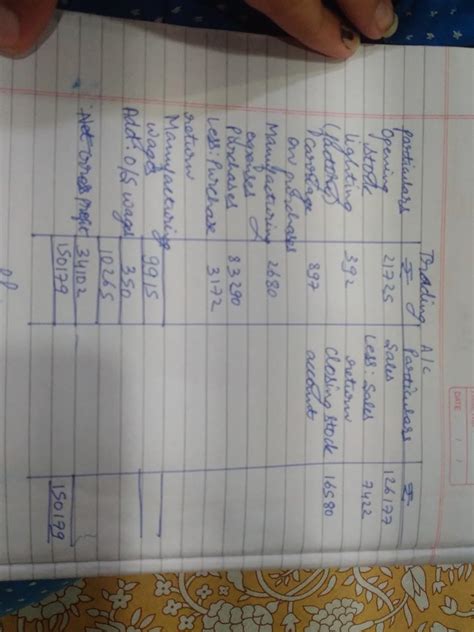 Trading A/c
particulars ₹ Particulars ₹
Opening 21725 Sales 126177
stock Less: Sales 7422
lighting 392 return
(factory) closing stock 16580
carriage 897 account
on purchases
Manufacturing 2680
expenses
purchases 83290
Less: Purchase 3172
return
Manufacturing
wages 9915
Add: O/S wages 350
10265
34102
150179 150179
DATE